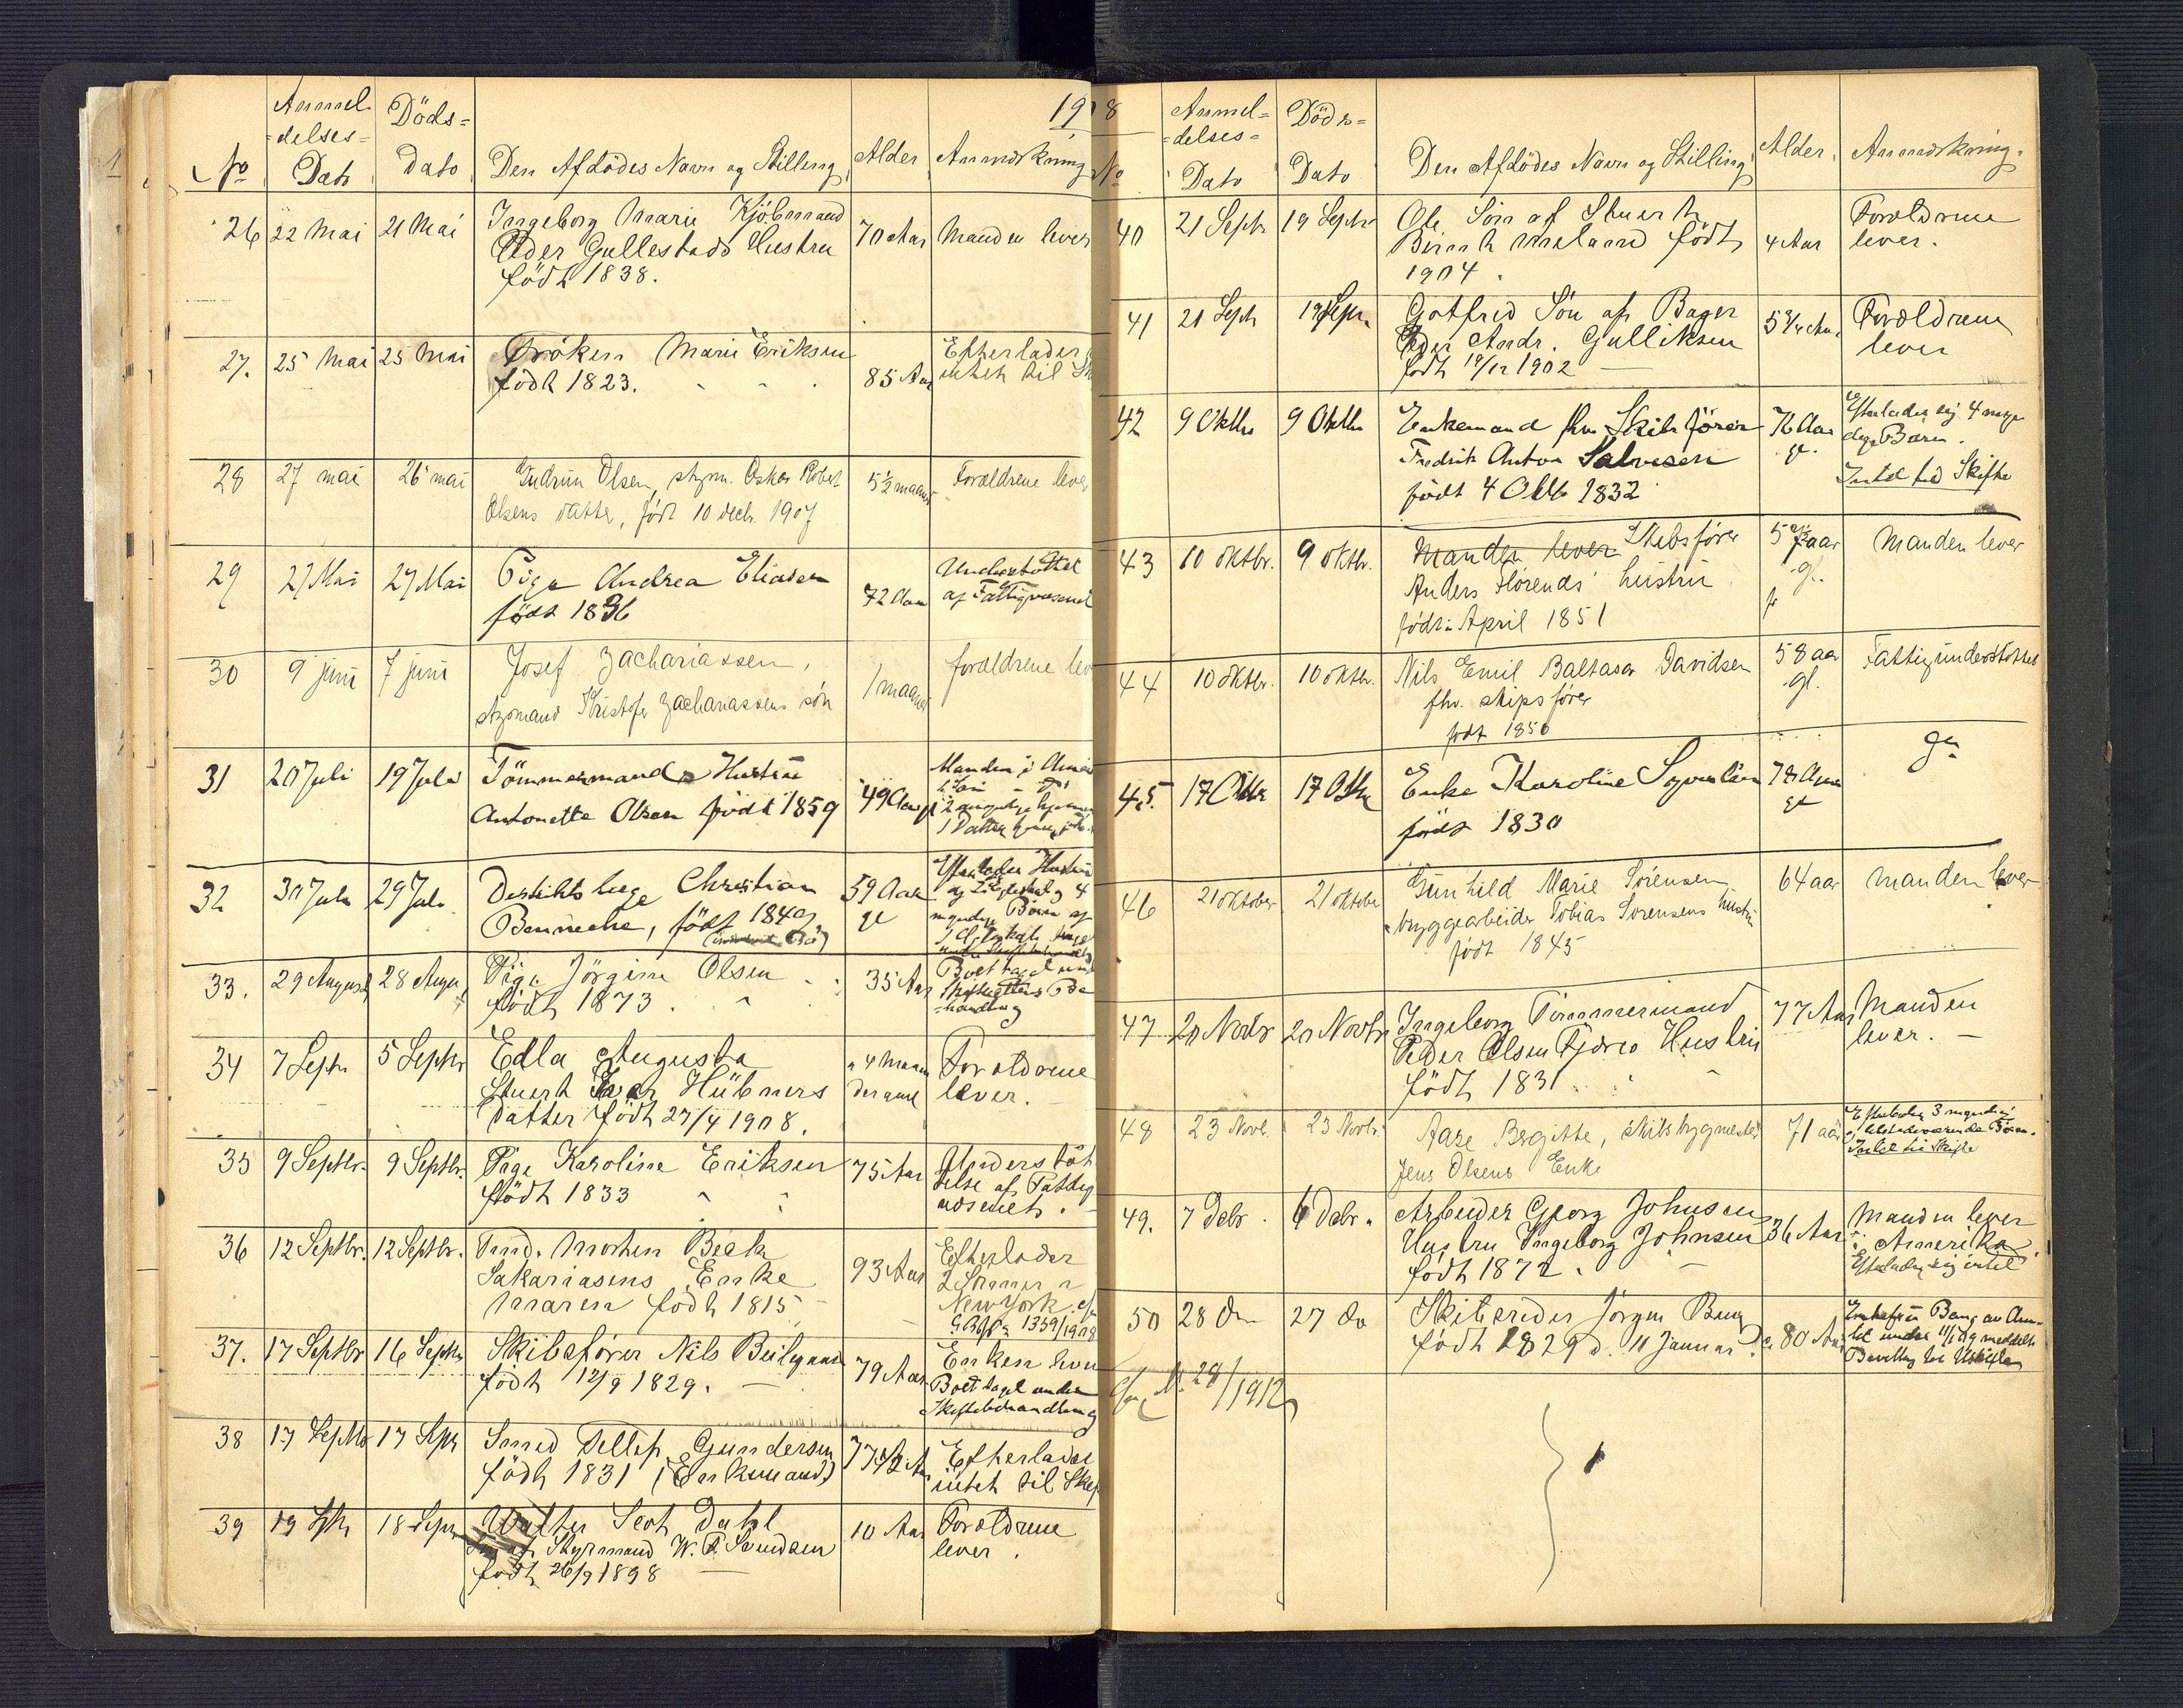 1908
No
Anmel-
=delses=
Dato
Döds=
dato
Den Afdödes Navn og Stilling
Alder
Anmærkning
26 22 Mai 21 Mai Ingeborg Marie Kjöbmand 70 Aar Manden lever
Peder Gullestads Hustru
födt 1838.
27. 25 Mai 25 Mai Fröken Marie Eriksen 85 Aar Efterlader
födt 1823. intet til
28 27 mai 26 mai Gudrun Olsen, styrm. Oskar Robert 5½ maaned Forældrene lever
Olsens datter, födt 10 decb. 1907
29 27 Mai 27 Mai Pige Andrea Eliasen 72 Aar Understöttet
födt 1836 af Fattigvæsenet
30 9 juni 7 juni Josef Zachariassen, 1 maaned forældrene lev
styrmand Kristofer Zachariassens sön
31 20 Juli 19 Juli Tömmermands Hustru 49 Aar gl Manden i
Antonette Olsen födt 1859
32 30 Juli 29 Juli Distriktslæge Christian 59 Aar gl Efterlader Hustru
Benneche, födt 1849 og 4
myndige Börn af
33. 29 August 28 Augu Pige Jörgine Olsen 35 Aar Boet taget und
födt 1873. Skifterettens Be
=handling
34 7 Septr 5 Septbr Edla Augusta 4 Maan Forældrene
Stuert Hübners lever.
Datter födt 27/4 1908.
35 9 Septbr. 9 Septbr. Pige Karoline Eriksen 75 Aar Understöt
födt 1833 telse af Fattig
væsenet.
36 12 Septbr. 12 Septbr. Morten Beck 93 Aar Efterlader
Sakariasens Enke 2 Sönner i
Maren födt 1815 New York. cfr
1359/1908
37. 17 Septbr 16 Septbr Skibsförer Nils 79 Aar Enken
födt 12/9 1829. Boet taget under
Skiftebehandling
38 17 Septbr 17 Septr Smed Tellef Gundersen 77½ Aar Efterlader
födt 1831 (Enkemand) intet til Skif
39 19 Septr 18 Septr Walter Scot Dahl 10 Aar Forældrene
Sön af Styrmand W. Svendsen lever.
födt 26/9 1898
No
Anmel=
=delses=
Dato
Döds=
Dato
Den Afdödes Navn og Stilling
Alder
Anmærkning.
40 21 Septr 19 Septbr Ole Sön af Stuert 4 Aar Forældrene
födt lever.
1904.
41 21 Septr 19 Septr. Gotfred Sön af Bager 5¾ Aar Forældrene
Peder Andr. Gulliksen lever
födt 19/12 1902
42 9 Oktbr 9 Oktbr Enkemand fhv Skibsförer 76 Aar gl. Efterlader sig 4 myn
Fredrik Anton Salvesen dige Börn.
födt 4 Oktb 1832 Intet til Skifte
43 10 oktbr. 9 oktbr. Manden lever Skibsförer 57½ aar gl. Manden lever
Anders Florends hustru
födt i April 1851
44 10 oktbr. 10 oktbr. Nils Emil Baltasar Davidsen 58 aar gl. Fattigunderstöttet
fhv. skipsförer
födt 1850
45. 17 Oktbr 17 Oktbr Enke Karoline 78 Aar gl
födt 1830
46 21 oktober 21 oktober Gunhild Marie Sörensen, 64 aar manden lever
bryggearbeider Tobias Sörensens hustru
födt 1845
47 20 Novbr 20 Novbr Ingeborg Tömmermand 77 Aar Manden
Peder Olsen Hustru lever.
födt 1831.
48 23 Novb. 23 Novbr. Aase Bergitte, skibsbygmester 71 aar Efterlader 3 myndige
Jens Olsens Enke tilstedeværende Börn.
Intet til Skifte
49. 7 Debr. 6 Debr. Arbeider Georg Johnsens 36 Aar Manden lever
Hustru Ingeborg Johnsen i Amerika.
födt 1872. Efterlader sig intet
50 28 do 27 do Skibsreder Jörgen Bang 80 Aar
födt 1829 d. 11 Januar. Bevilling til Uskifte
cfr. N. 28/1912